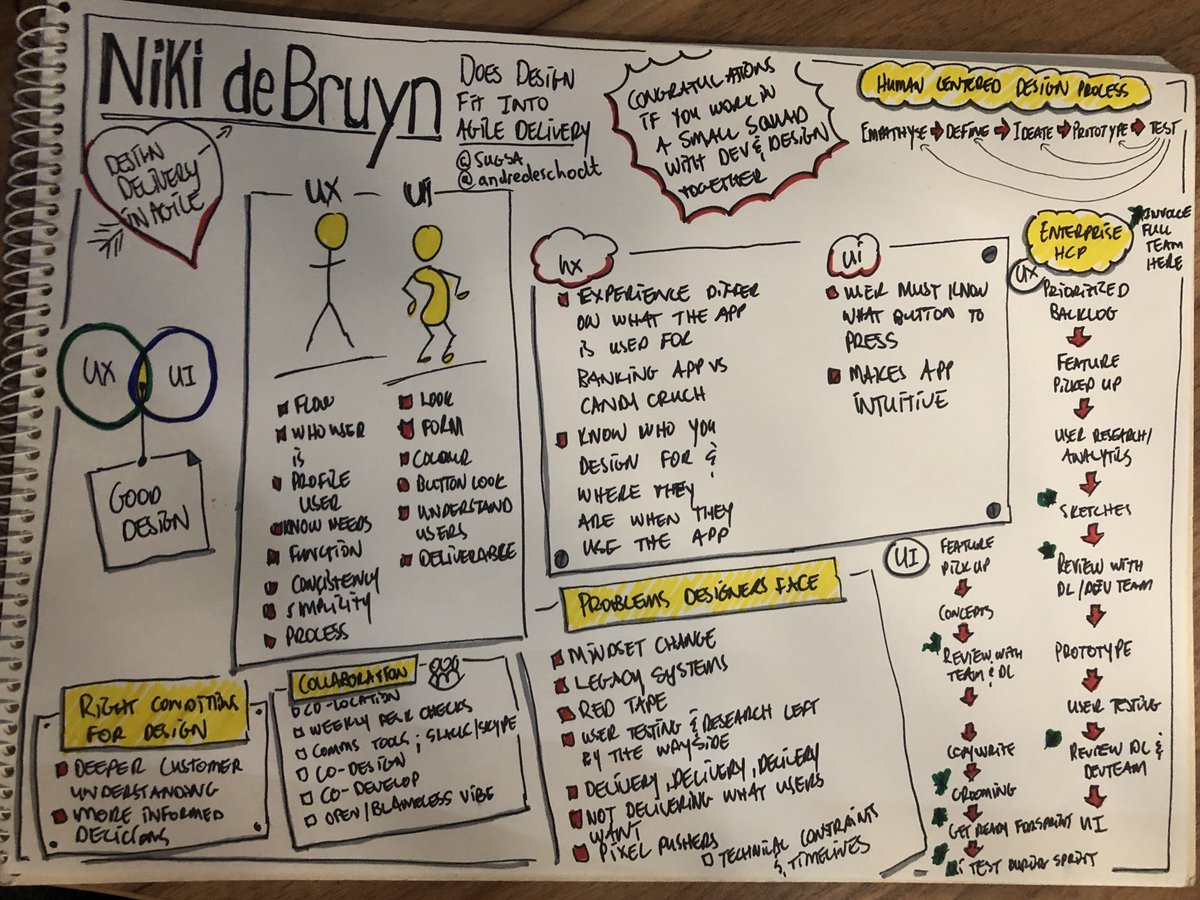 Niki de Bruyn
DOES DESIGN
FIT INTO
AGILE DELIVERY
@SUGSA
@andredeschodt
CONGRATULATIONS
IF YOU WORK IN
A SMALL SQUAD
WITH DEV & DESIGN
TOGETHER
HUMAN CENTERED DESIGN PROCESS
EMPATHYSE DEFINE IDEATE PROTOTYPE TEST
DESIGN
DELIVERY
IN AGILE
UX
UI
GOOD
DESIGN
UX
FLOW
WHO USER
IS
PROFILE
USER
KNOW NEEDS
FUNCTION
CONCISTENCY
SIMPLICITY
PROCESS
Ui
LOOK
FORM
COLOUR
BUTTON LOOK
UNDERSTAND
USERS
DELIVERABLE
UX
EXPERIENCE DIFFER
ON WHAT THE APP
IS USED FOR
BANKING APP VS
CANDY CRUCH
KNOW WHO YOU
DESIGN FOR &
WHERE THEY
ARE WHEN THEY
USE THE APP
Ui
USER MUST KNOW
WHAT BUTTON TO
PRESS
MAKES APP
INTUITIVE
ENTERPRISE
HCP
INVOLVE
FULL
TEAM
HERE
UX
PRIORITIZED
BACKLOG
FEATURE
PICKED UP
USER RESEARCH/
ANALYTICS
SKETCHES
REVIEW WITH
DL/DEV TEAM
PROTOTYPE
USER TESTING
REVIEW DL &
DEV TEAM
UI
UI
FEATURE
PICK UP
CONCEPTS
REVIEW WITH
TEAM & DL
COPYWRITE
GROOMING
GET READY FOR SPRINT
UI TEST DURING SPRINT
RIGHT CONDITIONS
FOR DESIGN
DEEPER CUSTOMER
UNDERSTANDING
MORE INFORMED
DECICIONS
COLLABORATION
CO-LOCATION
WEEKLY DESK CHECKS
COMMS TOOLS ; SLACK/SKYPE
CO-DESIGN
CO-DEVELOP
OPEN/BLAMELESS VIBE
PROBLEMS DESIGNERS FACE
MINDSET CHANGE
LEGACY SYSTEMS
RED TAPE
USER TESTING & RESEARCH LEFT
BY THE WAYSIDE
DELIVERY, DELIVERY, DELIVERY
NOT DELIVERING WHAT USERS
WANT
PIXEL PUSHERS
TECHNICAL CONTRAINTS
& TIMELIVES